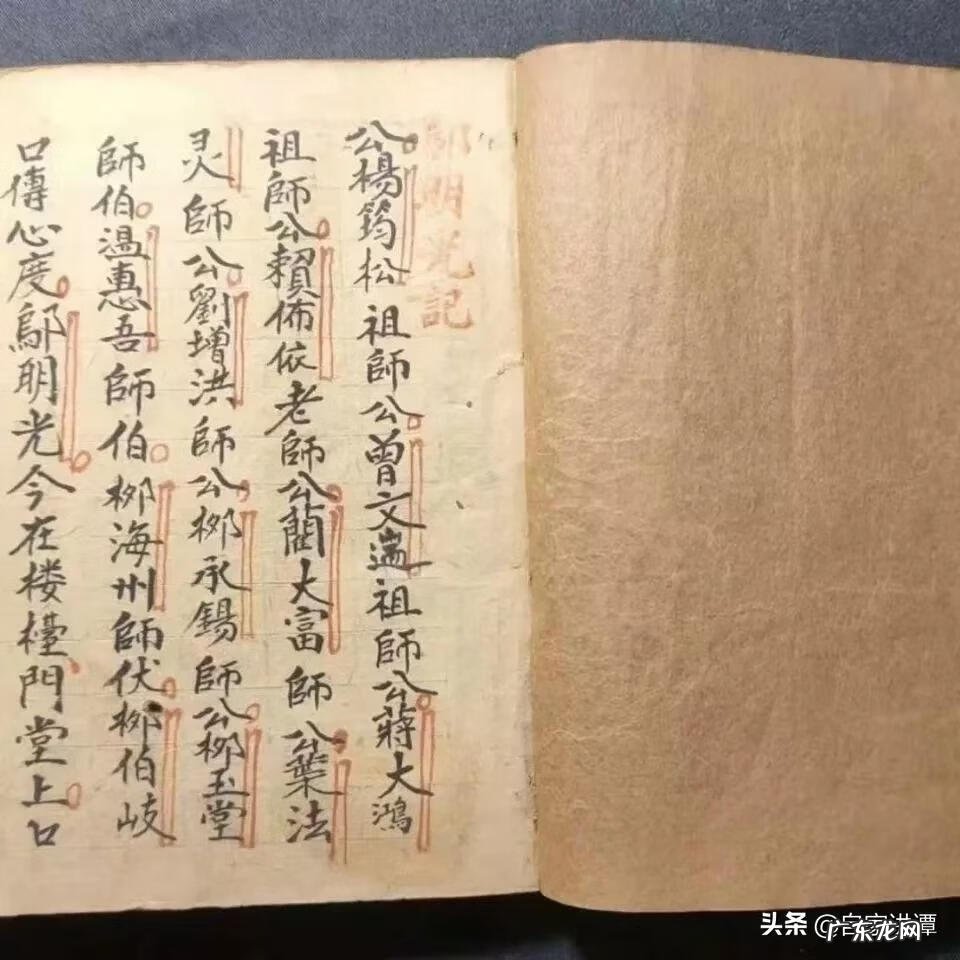 明光記
公楊筠松祖師公曾文遄祖師公蔣大鴻
祖師公賴佈依老師公藺大富師公葉法
灵師公劉增洪師公柳承錫師公柳玉堂
師伯温惠吾師伯柳海州師伏柳伯岐
口傳心度鄔明光今在楼檯門堂上口
头条 @客家洪谭
广东龙网